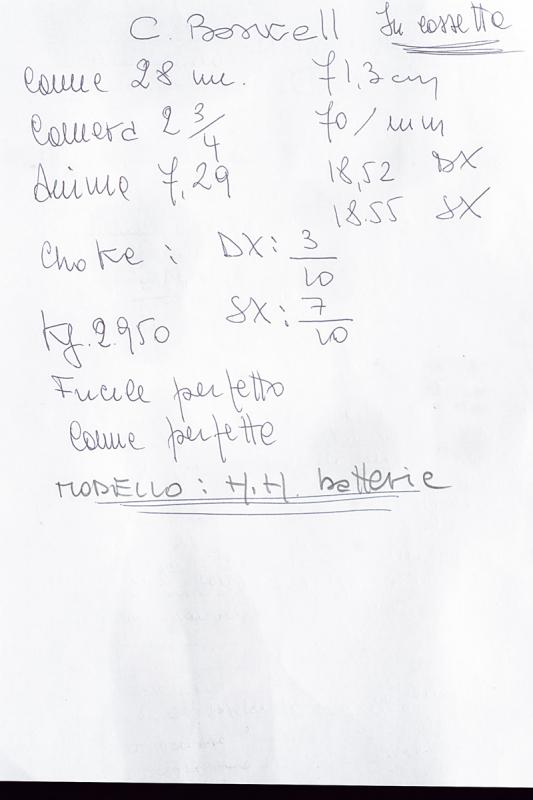 C. Boswell In cassetta
Canne 28 in. 71,3 cm
Camera 2 3/4 70/mm
Anime 7,29 18,52 DX
18.55 SX
Choke: DX: 3/10
Kg. 2.950 SX: 7/10
Fucile perfetto
Canne perfette
MODELLO: H.H. batterie